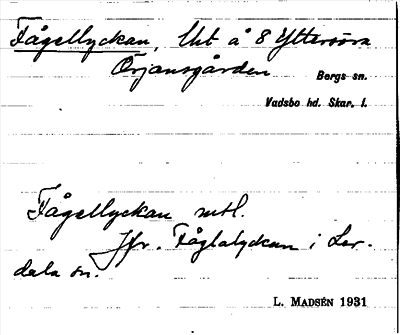 Fågellyckan, lht å 8 Yttersöra
Örjansgården Bergs sn.
Vadsbo hd. Skar. l.
Fågellyckan mtl.
Jfr. Fåglalyckan i Ler-
dala sn.
L. MADSÉN 1931